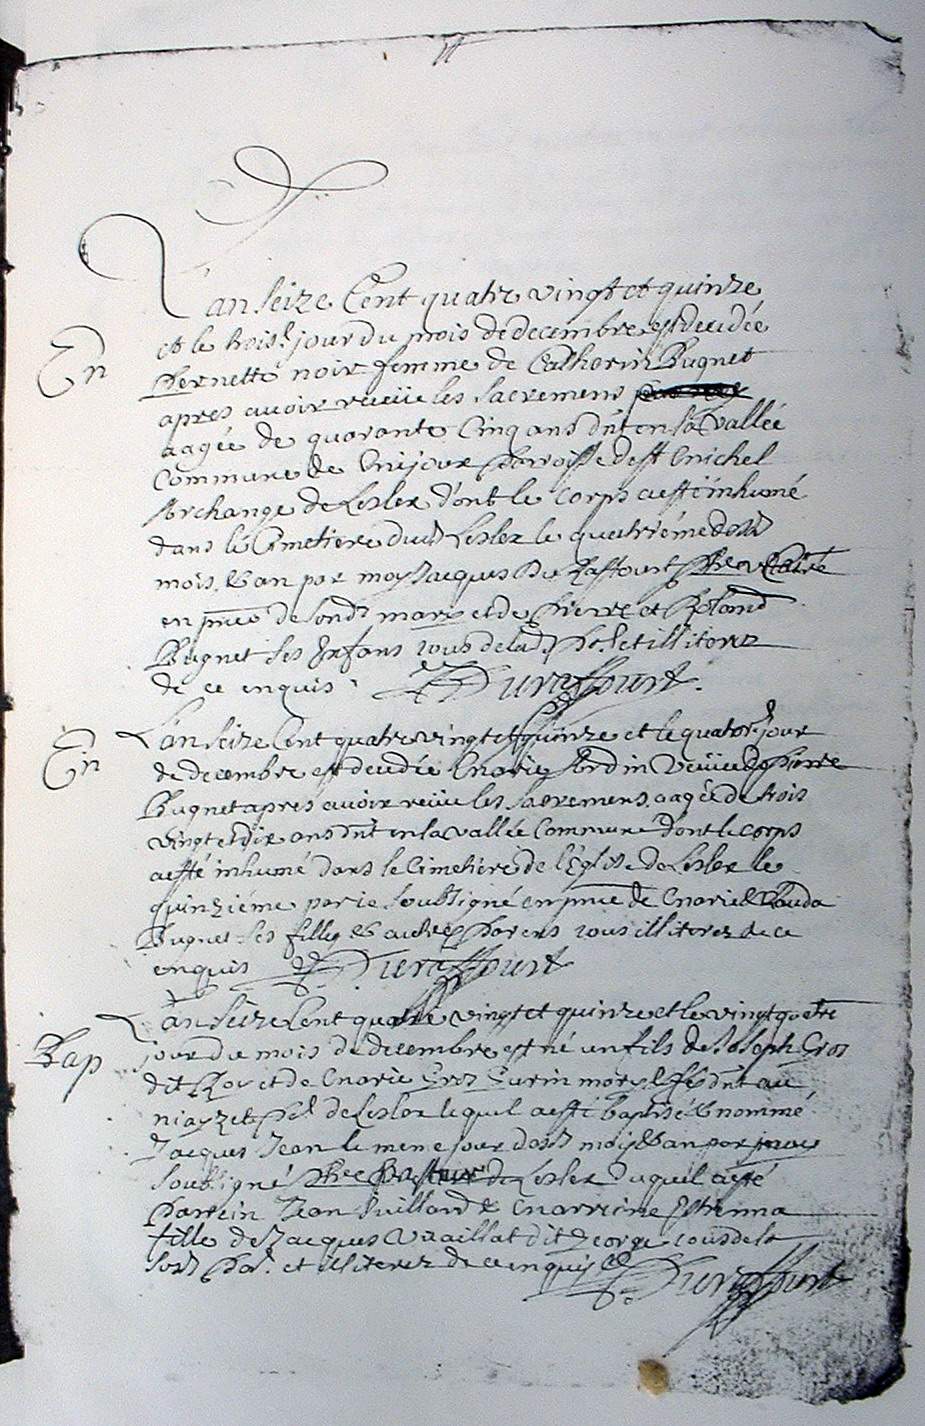 L'an seize Cent quatre vingt et quinze
En
et le trois.e jour du mois de decembre est decedée
Pernette noir femme de Catherin Bugnet
apres avoir receue les sacremens
aagée de quarante Cinq ans dnt en la vallée
Commune de parroisse de St Michel
Archange de Leslex d'ont le corps a esté inhumé
dans le Cimetiere dud Leslex le quatriéme dosd
mois, & an par moy Jacques Du Raffourt
en pnce de sond mary et de Pierre et Roland
Bugnet ses Enfans tous de lad. Par. et illiterez
de ce enquis. J Duraffourt.
En
L'an seize Cent quatre vingt et quinze et le quator.e jour
de decembre est decedée Marie veuue de Pierre
Bugnet apres avoir receue les sacremens, aagée de trois
vingt et dix ans dnt en la vallée Commune dont le corps
a esté inhumé dans le Cimetiere de l'Eglise de Leslex le
quinziéme par je soubsigné en pnce de Marie & Clauda
Bugnet ses filles & autres Parens tous illiterez de ce
enquis J Duraffourt
L'an seize Cent quatre vingt et quinze et le vingt quatre
Bap
jour du mois de decembre est né un fils de Joseph Gros
dit Roy et de Marie Gros mary & fe dnt au
Par de Leslex lequel a esté baptisé & nommé
Jacques Jean le meme jour dosd mois & an par
soubsigné de Leslex duquel a esté
Parrein Jean Vuillard & Marreine Estienna
fille de Jacques Vuaillat dit George tous de la
susd Par. et illiterez de ce enquis J Duraffourt